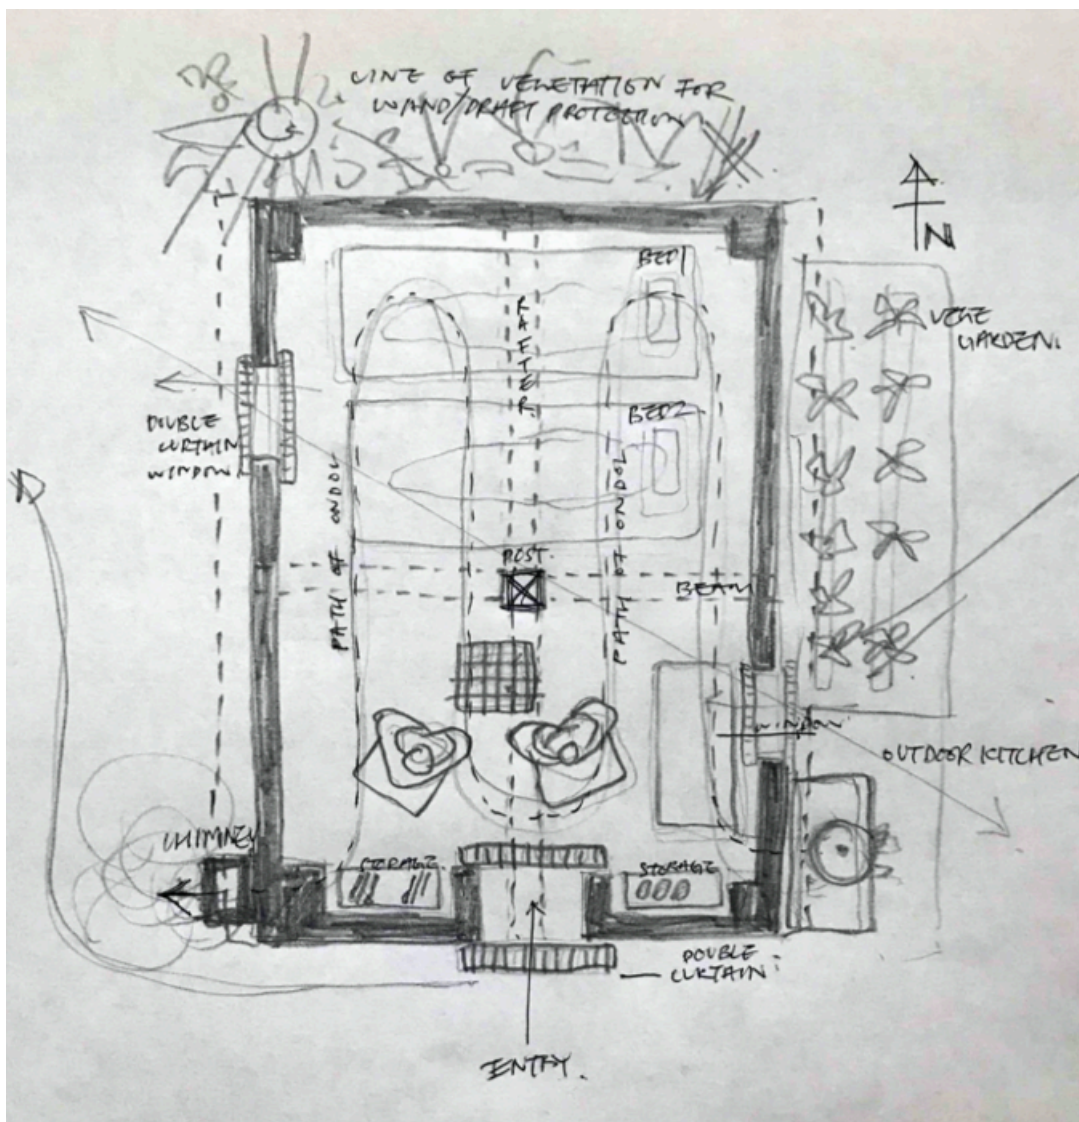 LINE OF VEGETATION FOR
WIND/DRAFT PROTECTION
N
BED 1
RAFTER
VEGE
GARDEN.
BED 2
DOUBLE
CURTAIN
WINDOW
PATH OF ONDOL
PATH OF ONDOL
POST.
BEAM
WINDOW
OUTDOOR KITCHEN
CHIMNEY
STORAGE
STORAGE
DOUBLE
CURTAIN
ENTRY.